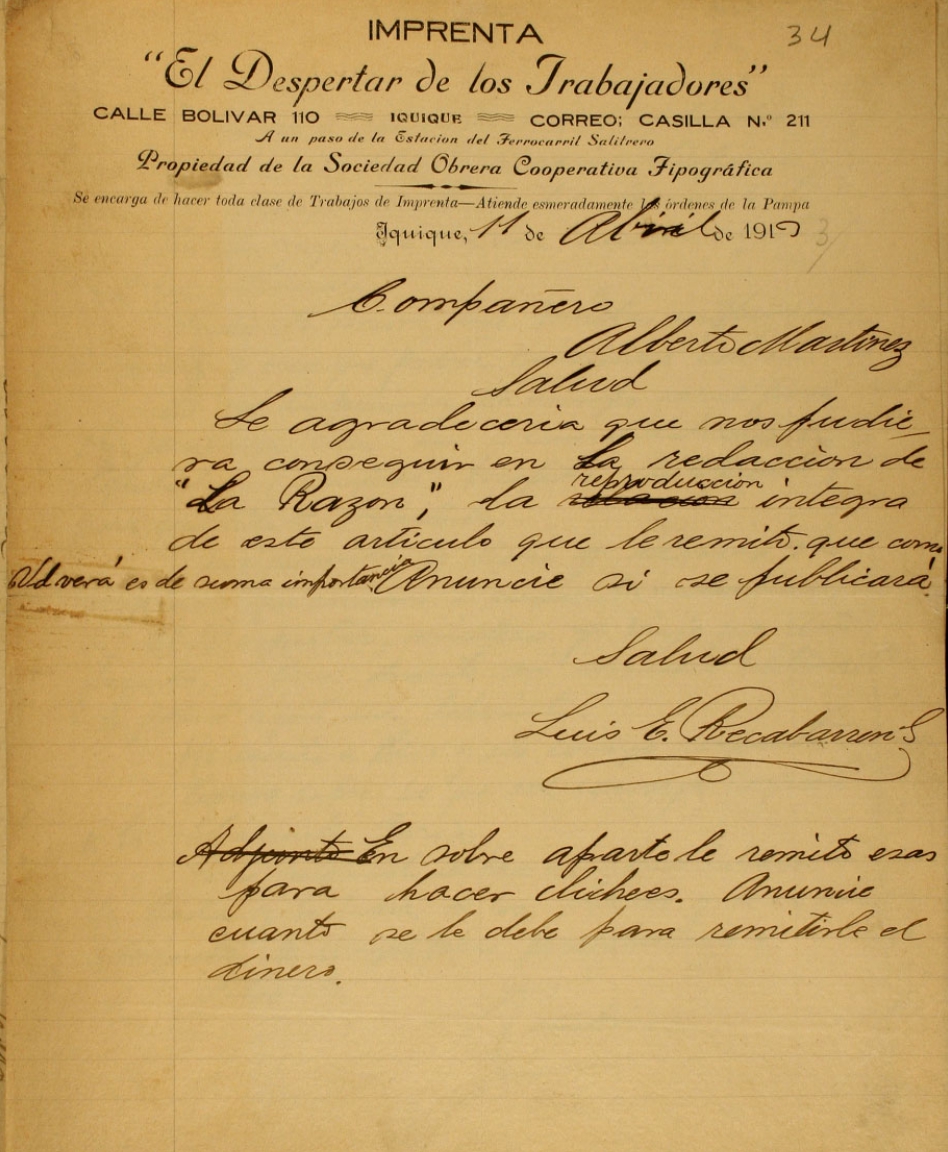 34
IMPRENTA
"El Despertar de los Trabajadores"
CALLE BOLIVAR 110 IQUIQUE CORREO; CASILLA N.º 211
A un paso de la Estacion del Ferrocarril Salitrero
Propiedad de la Sociedad Obrera Cooperativa Tipográfica
Se encarga de hacer toda clase de Trabajos de Imprenta—Atiende esmeradamente las órdenes de la Pampa
Iquique, 11 de Abril de 191
3
Compañero
Alberto Martinez
Salud
Le agradeceria que nos pudie-
ra conseguir en la redaccion de
"La Razon", la reproduccion integra
de este artículo que le remito. que como
Ud verá es de suma importancia Anuncie si se publicará.
Salud
Luis E. Recabarren S
Adjunto En sobre aparte le remito esas
para hacer clichees. Anuncie
cuanto se le debe para remitirle el
dinero.